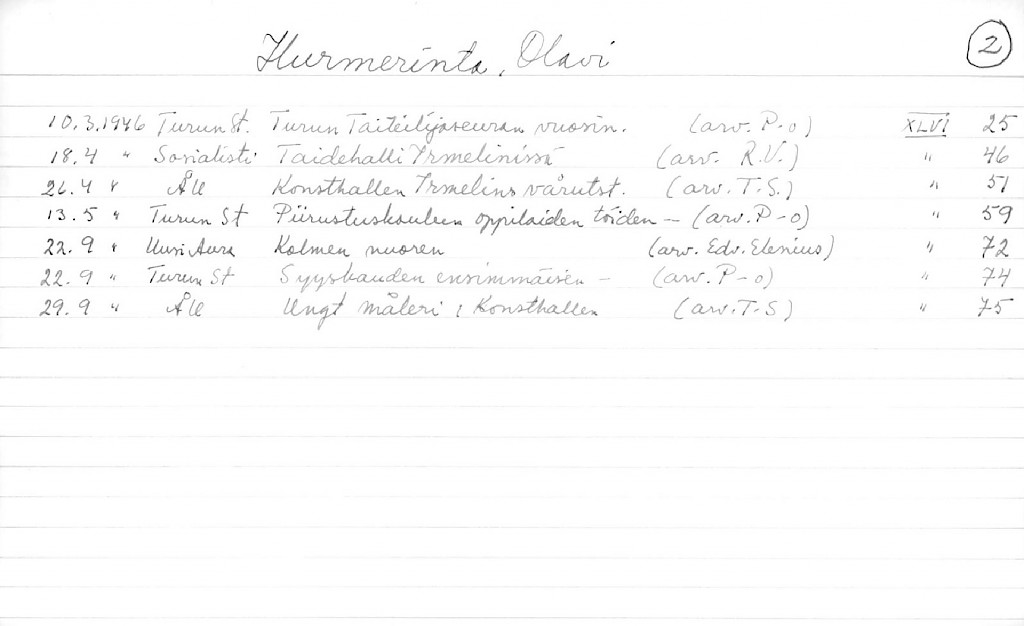 Hurmerinta, Olavi
2
10.3.1946 Turun St. Turun Taiteilijaseuran vuosin. (arv. P-o) XLVI 25
18.4 " Sosialisti Taidehalli Irmelinissä (arv. R.V.) " 46
26.4 " ÅU Konsthallen Irmelins vårutst. (arv. T.S.) " 51
13.5 " Turun St Piirustuskoulun oppilaiden töiden - (arv. P-o) " 59
22.9 " Uusi Aura Kolmen nuoren (arv. Edv. Elenius) " 72
22.9 " Turun St Syyskauden ensimmäisen - (arv. P-o) " 74
29.9 " ÅU Ungt måleri i Konsthallen (arv. T-S) " 75